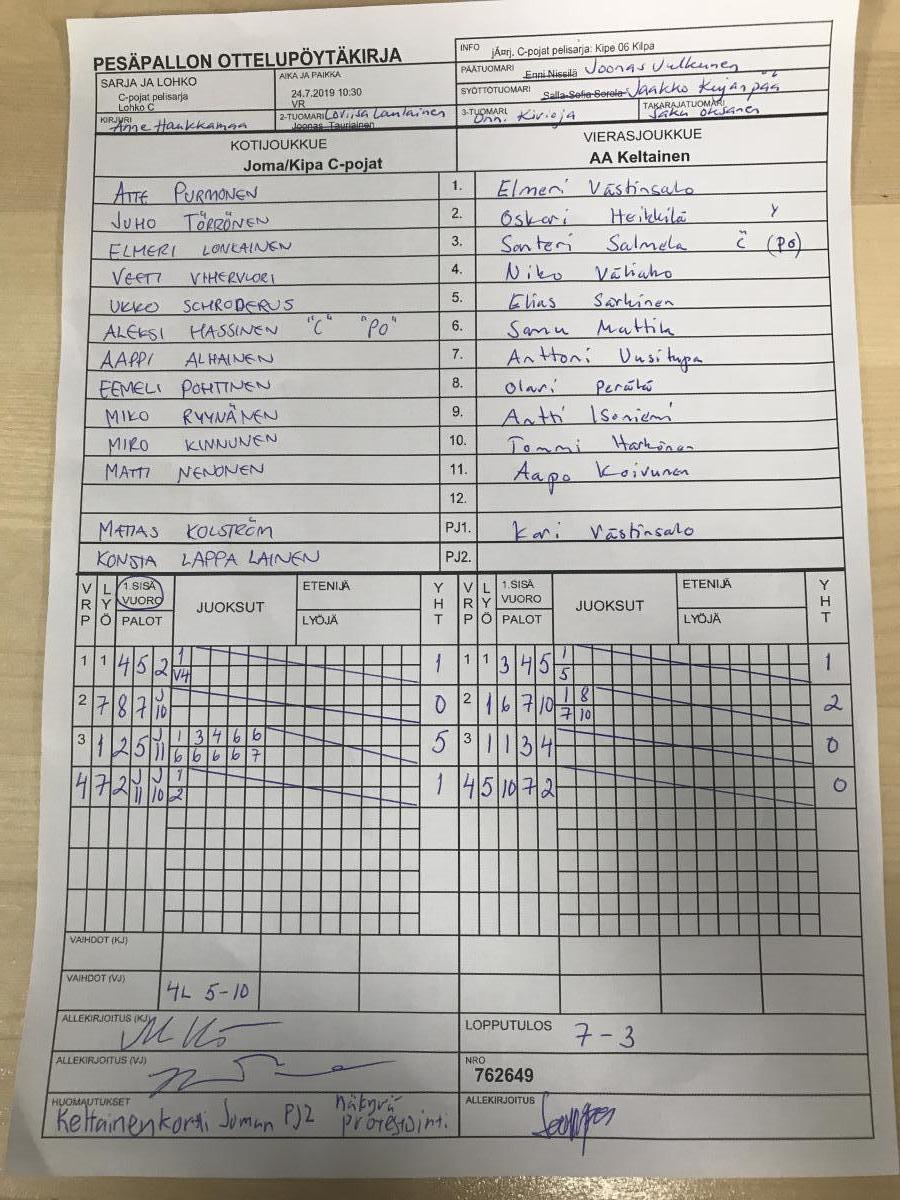 PESÄPALLON OTTELUPÖYTÄKIRJA
INFO jÄ¤rj. C-pojat pelisarja: Kipe 06 Kilpa
SARJA JA LOHKO
C-pojat pelisarja
Lohko C
AIKA JA PAIKKA
24.7.2019 10:30
VR
PÄÄTUOMARI Enni Nissilä Joonas
SYÖTTOTUOMARI Salla-Sofia Sorola Jaakko
KIRJURI
Hankkamaa
2-TUOMARI Loviisa
Joonas Tauriainen
3-TUOMARI
Onni Kivioja
TAKARAJATUOMARI
Oksanen
KOTIJOUKKUE
Joma/Kipa C-pojat
VIERASJOUKKUE
AA Keltainen
ATTE PURMONEN 1. Elmeri Västinsalo
JUHO TÖRRÖNEN 2. Oskari Heikkilä Y
ELMERI LONKAINEN 3. Santeri Salmela C (PO)
VEETI VIHERVUORI 4. Niko Väliaho
UKKO SCHRODERUS 5. Elias Särkinen
ALEKSI HASSINEN "C" "PO" 6. Samu Mattila
AAPPI ALHAINEN 7. Anttoni Uusitupa
EEMELI POHTINEN 8. Olavi Perätä
MIKO RYYNÄNEN 9. Antti Isoniemi
MIRO KINNUNEN 10. Tommi Härkönen
MATTI NENONEN 11. Aapo Koivunen
12.
MATIAS KOLSTRÖM PJ1. Kari Västinsalo
KONSTA LAPPALAINEN PJ2.
VRP LYÖ 1.SISÄ VUORO PALOT JUOKSUT ETENIJÄ LYÖJÄ YHT VRP LYÖ 1.SISÄ VUORO PALOT JUOKSUT ETENIJÄ LYÖJÄ YHT
1 1 4 5 2 1 V4 1 1 1 3 4 5 1 5 1
2 7 8 7 J 10 0 2 1 6 7 10 1 8 7 10 2
3 1 2 5 J 11 1 3 4 6 6 6 6 6 6 7 5 3 1 1 3 4 0
4 7 2 J 11 J 10 1 2 1 4 5 10 7 2 0
VAIHDOT (KJ)
VAIHDOT (VJ) 4L 5-10
ALLEKIRJOITUS (KJ)
LOPPUTULOS 7-3
ALLEKIRJOITUS (VJ)
NRO
762649
HUOMAUTUKSET
Keltainen kortti Joman PJ2 näkyvä protestointi.
ALLEKIRJOITUS